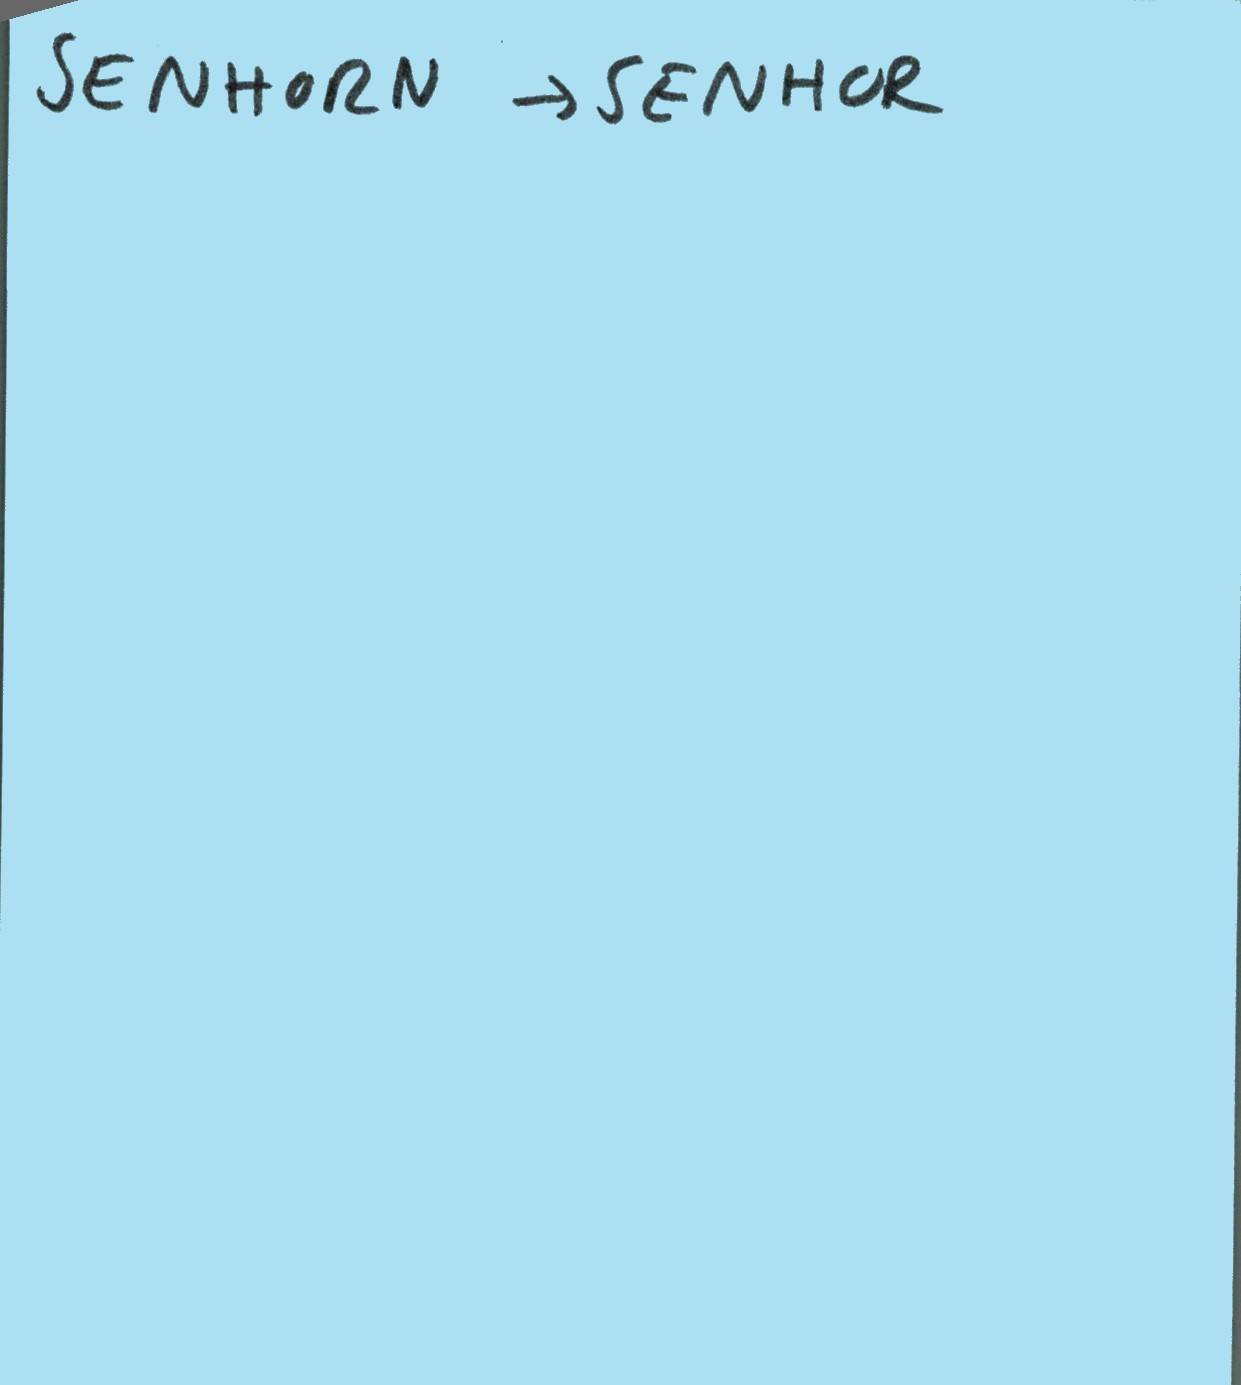 SENHORN → SENHOR